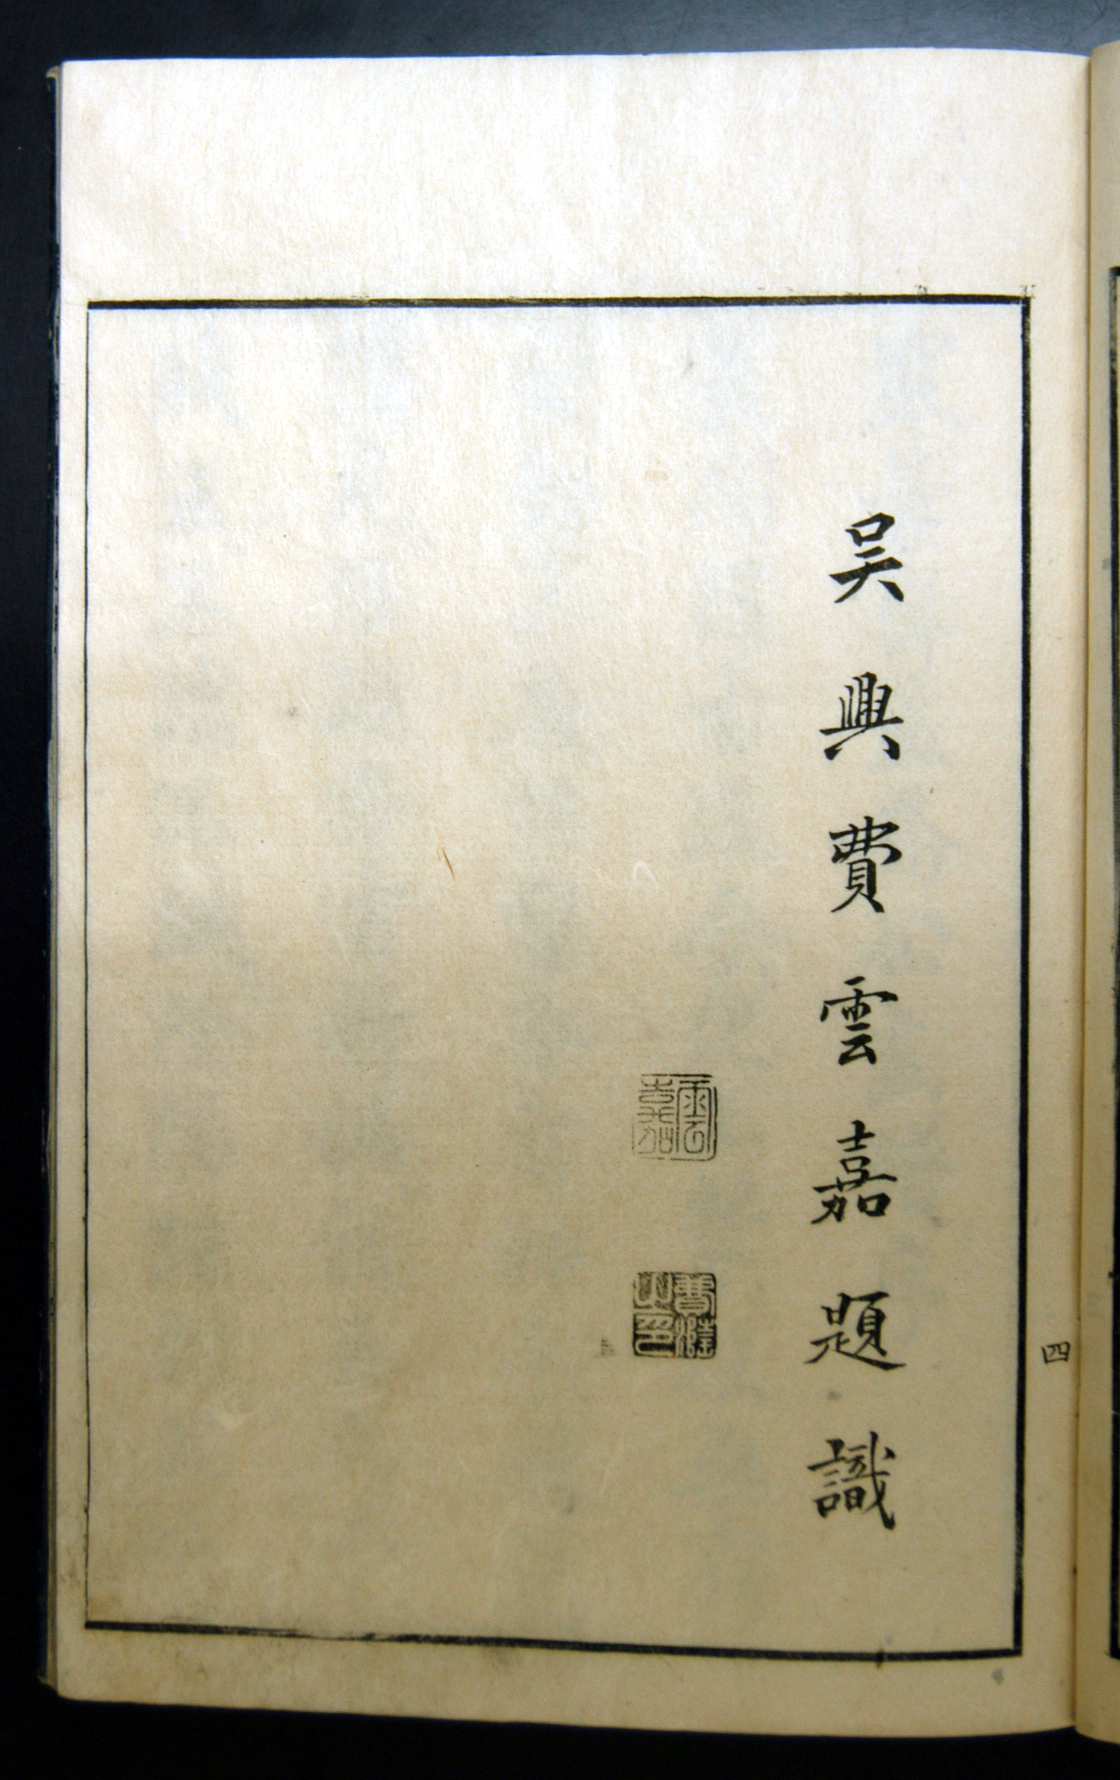 吴興費雲嘉題識
雲嘉
四